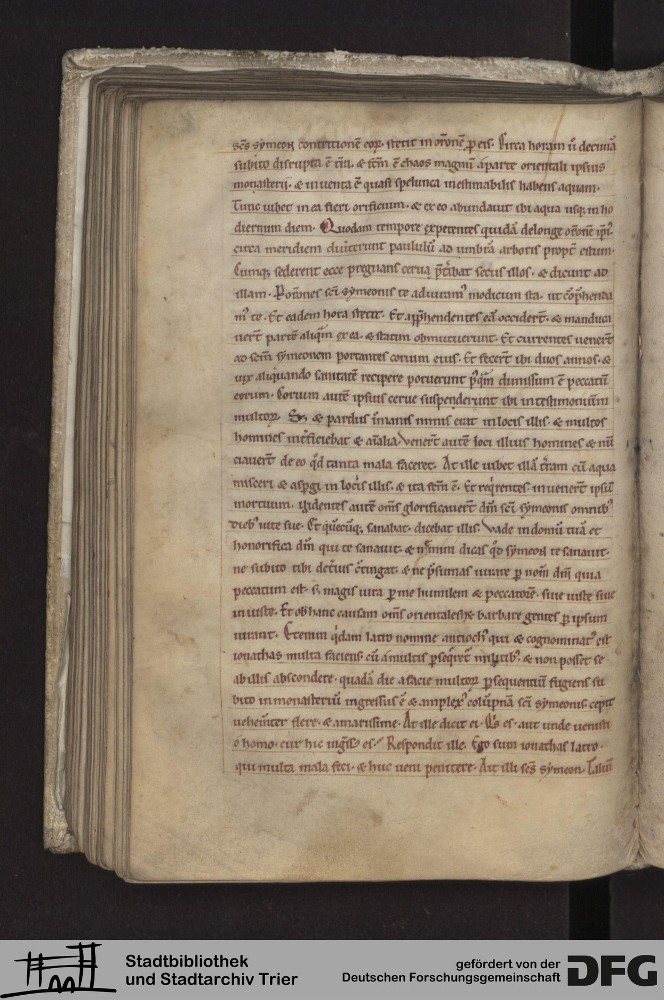 scs symeon contritionē eoꝝ. stetit in orōnē ꝑ eis. Circa horam ū decimā
subito disrupta ē tr̄a. & fctm̄ ē chaos magnū aparte orientali ipsius
monasterij. & inuenta ē quasi spelunca inestimabilis habens aquam.
Tunc iubet in ea fieri orificium. & ex eo abundauit ibi aqua usq; in ho
diernum diem. Quodam tempore expetentes quidā delonge orōnē ip̄i.
circa meridiem diuerterunt paululū ad umbrā arboris propt̄ estum.
Cumq; sederent ecce pregnans cerua p̄t̄ibat secus illos. & dicunt ad
illam. P orōnes sc̄i symeonis te adiuram᷒ modicum sta. ut cōp̄henda
m᷒ te. Et eadem hora stetit. Et app̄hendentes eā occiderr̄t. & manduca
uert̄ partē aliqm̄ ex ea. & statim obmutuerunt. Et currentes uenerr̄t
ad sc̄m symeonem portantes corium eius. Et fecert̄ ibi duos annos. &
uix aliquando sanitatē recipere potuerunt p̄qm̄ dimissum ē peccatū
eorum. Corium autē ipsius cerue suspenderunt ibi in testimonium
multoꝝ. Sꝫ & pardus īmanis nimis erat in locis illis. & multos
homines int̄ficiebat & aīalia. Venert̄ autē loci illius homines & nū
ciauert̄ de eo qd̄ tanta mala faceret. At ille iubet illā tr̄am cū aqua
misceri & asp̄gi in locis illis. & ita fctm̄ ē. Et reqrentes inuenert̄ ipsū
mortuum. Uidentes autē om̄s glorificauert̄ dm̄ sc̄i symeonis omnib᷒
dieb᷒ uite sue. Et quēcūq; sanabat. dicebat illis. Vade in domū tuā et
honorifica dm̄ qui te sanauit. & nemini dicas qd̄ symeon te sanauit.
ne subito tibi det̄ius c̄tingat. & ne p̄sumas iurare ꝑ nom̄ dn̄i quia
peccatum est. sꝫ magis iura ꝑ me humilem & peccatorē. siue iuste siue
iniuste. Et ob hanc causam om̄s orientales & barbare gentes ꝑ ipsum
iurant. Etenim qdam latro nomine antioch᷒ qui & cognominat᷒ est
ionathas multa faciens. cū a multis ꝑseqret̄ militib᷒. & non posset se
ab illis abscondere. quadā die a facie multoꝝ ꝑsequentiū fugiens su
bito in monasteriū ingressus ē & amplex᷒ colūpnā sc̄i symeonis. cepit
uehem̄ter flere. & amarissime. At ille dicit ei. Qs es. aut unde uenisti
o homo. cur huc ingss᷒ es. Respondit ille. Ego sum ionathas latro.
qui multa mala feci. & huc ueni penitere. Ait illi scs symeon. Taliū
Stadtbibliothek
und Stadtarchiv Trier
gefördert von der
Deutschen Forschungsgemeinschaft
DFG